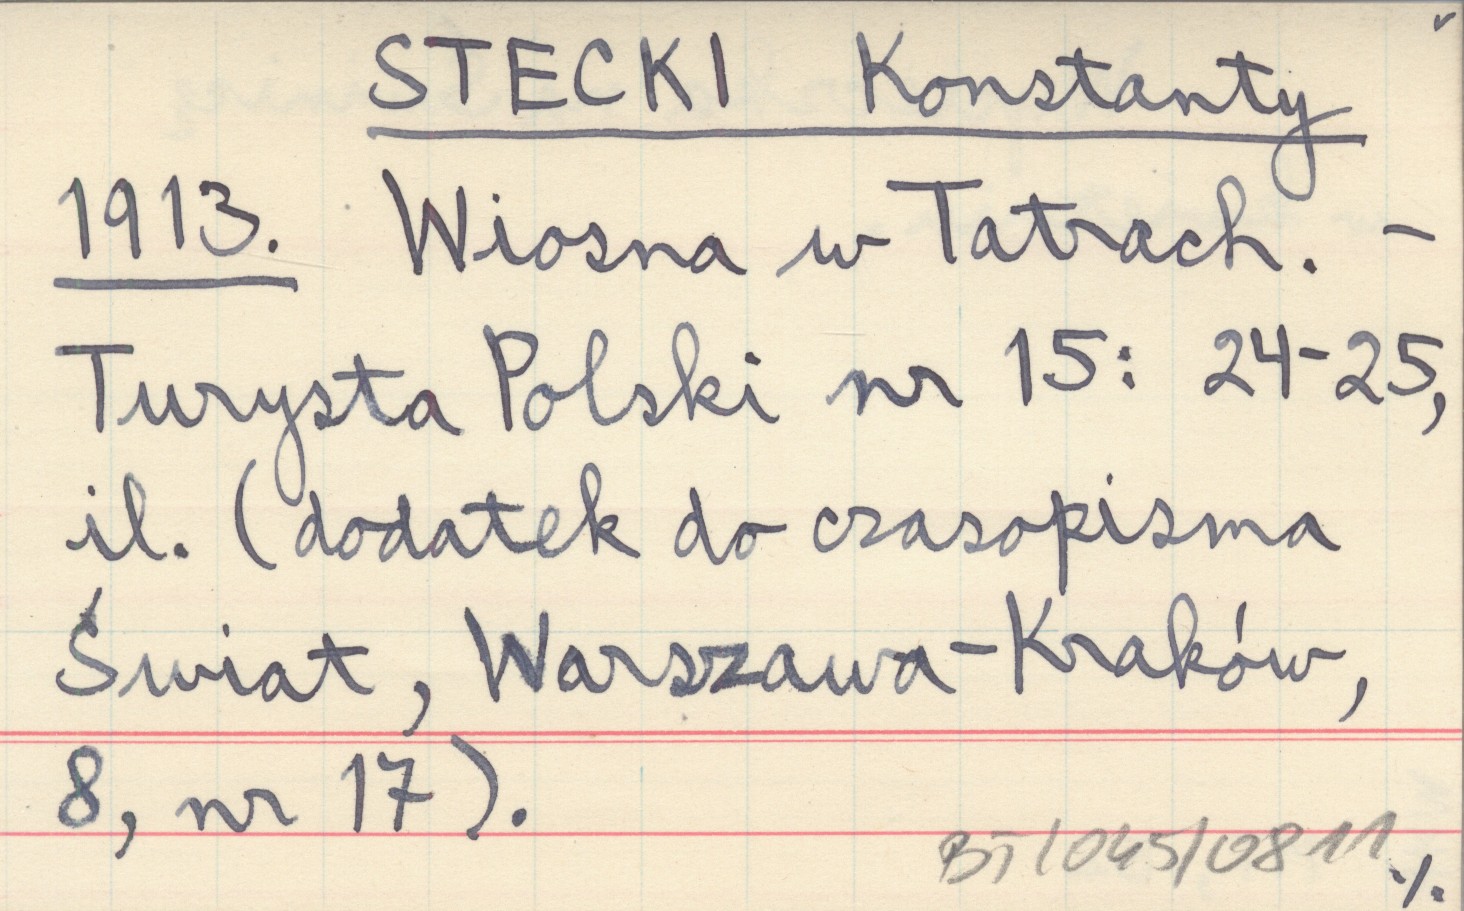 STECKI Konstanty
1913. Wiosna w Tatrach. -
Turysta Polski nr 15: 24-25,
il. (dodatek do czasopisma
Świat, Warszawa-Kraków,
8, nr 17).
BT/045/0811
./.